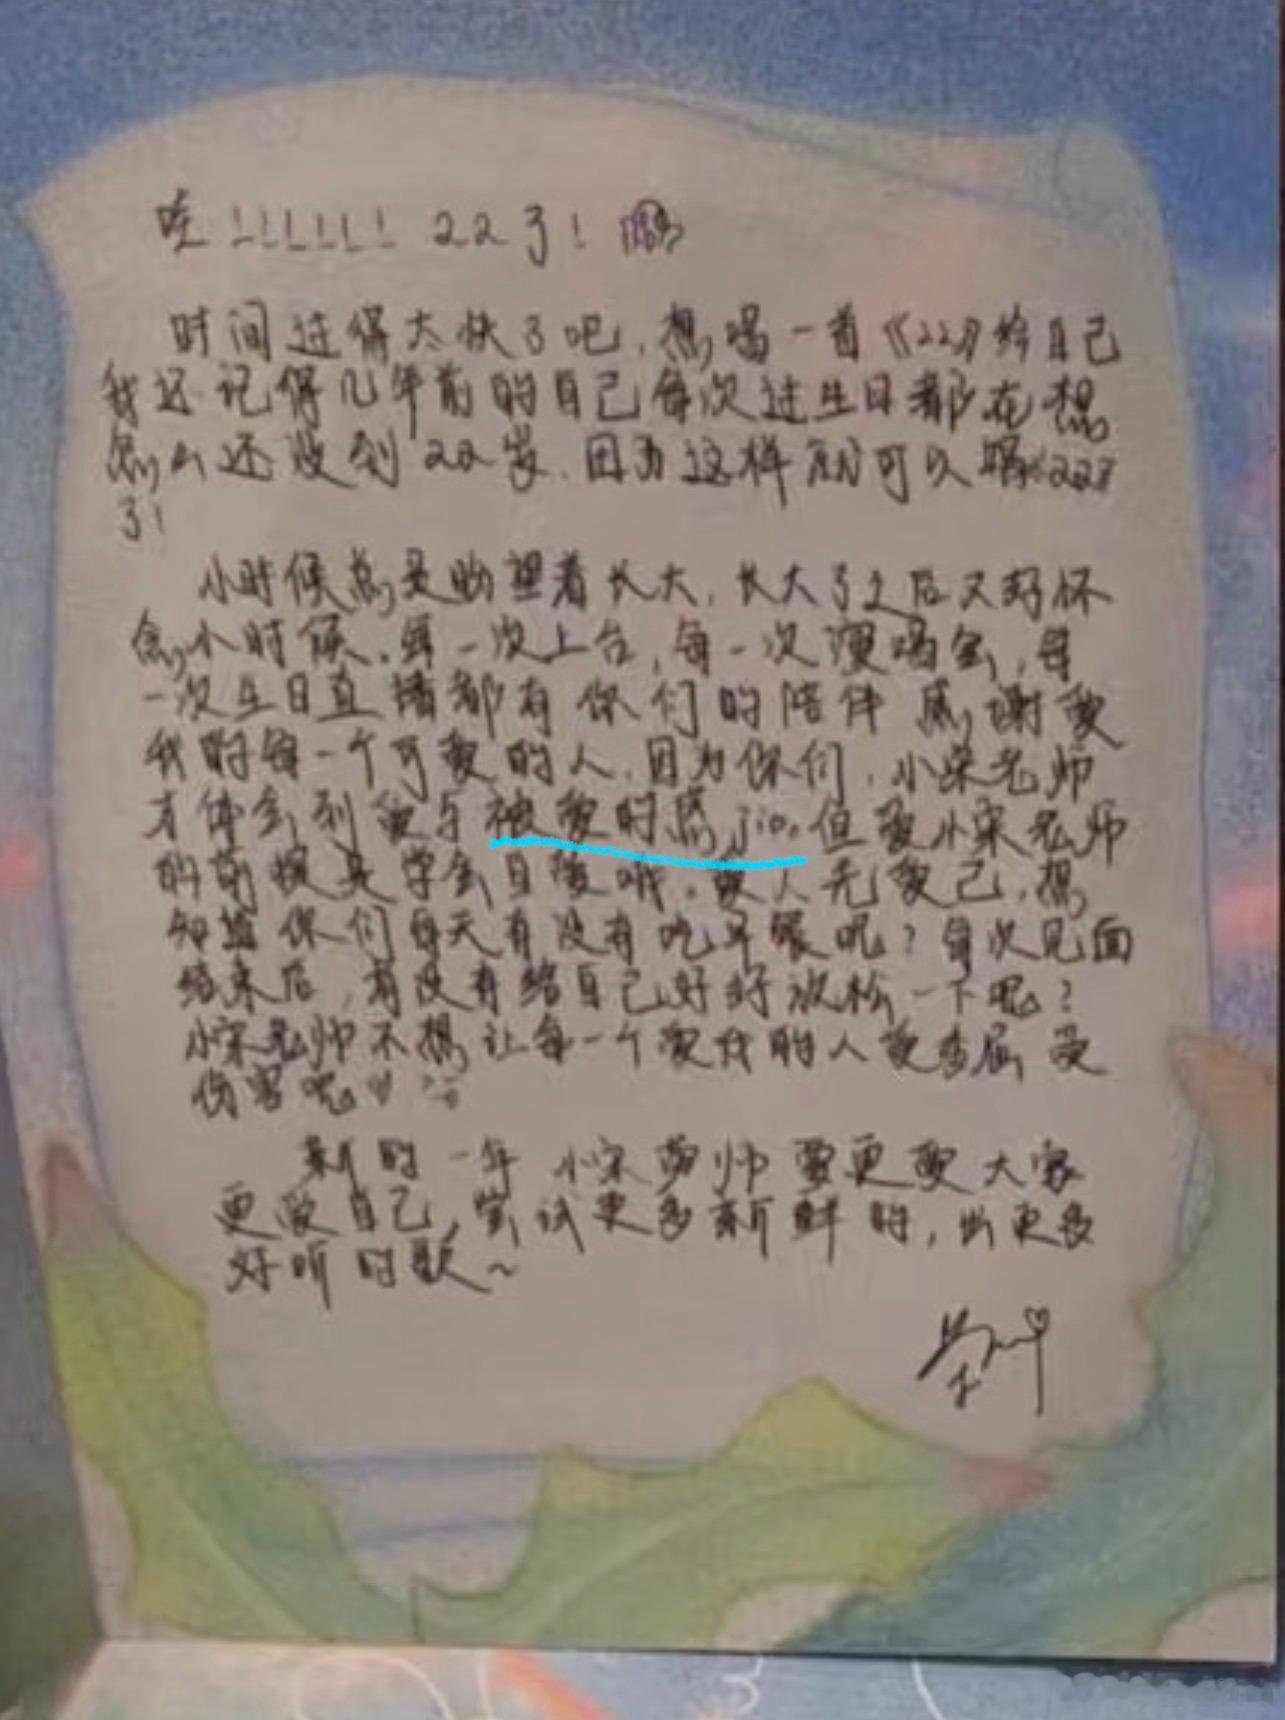 哇!!!!!! 22了!
时间过得太快了吧,想唱一首《22》给自己
我还记得几年前的自己每次过生日都在想
怎么还没到22岁,因为这样就可以唱《22》
了!
小时候总是盼望着长大,长大了之后又好怀
念小时候,每一次上台,每一次演唱会,每
一次生日直播都有你们的陪伴 感谢爱
我的每一个可爱的人,因为你们,小宋老师
才体会到爱与被爱的感jio。但爱小宋老师
的前提是学会自爱哦,爱人先爱己,想
知道你们每天有没有吃早餐呢?每次见面
结束后,有没有给自己好好放松一下呢?
小宋老师不想让每一个爱我的人受委屈 受
伤害呢♡
新的一年 小宋老师要更爱大家
更爱自己,尝试更多新鲜的,出更多
好听的歌~